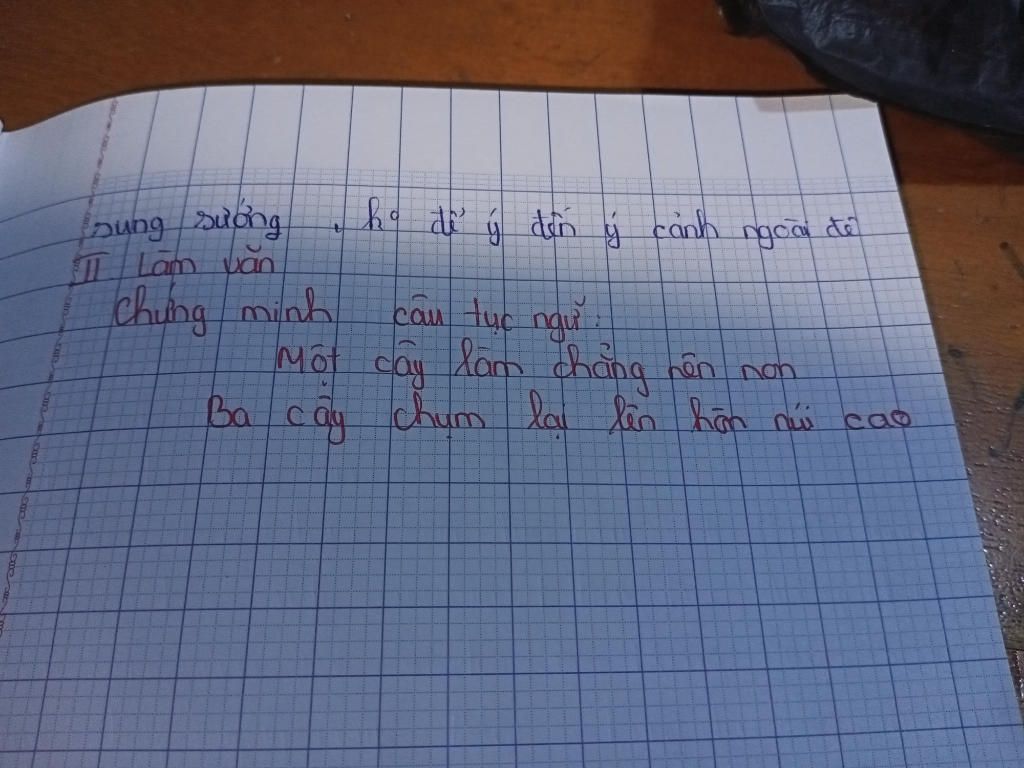 sung sướng, họ để ý đến ý cảnh ngoài đê
II Làm văn
Chứng minh câu tục ngữ:
Một cây làm chẳng nên non
Ba cây chụm lại lên hòn núi cao